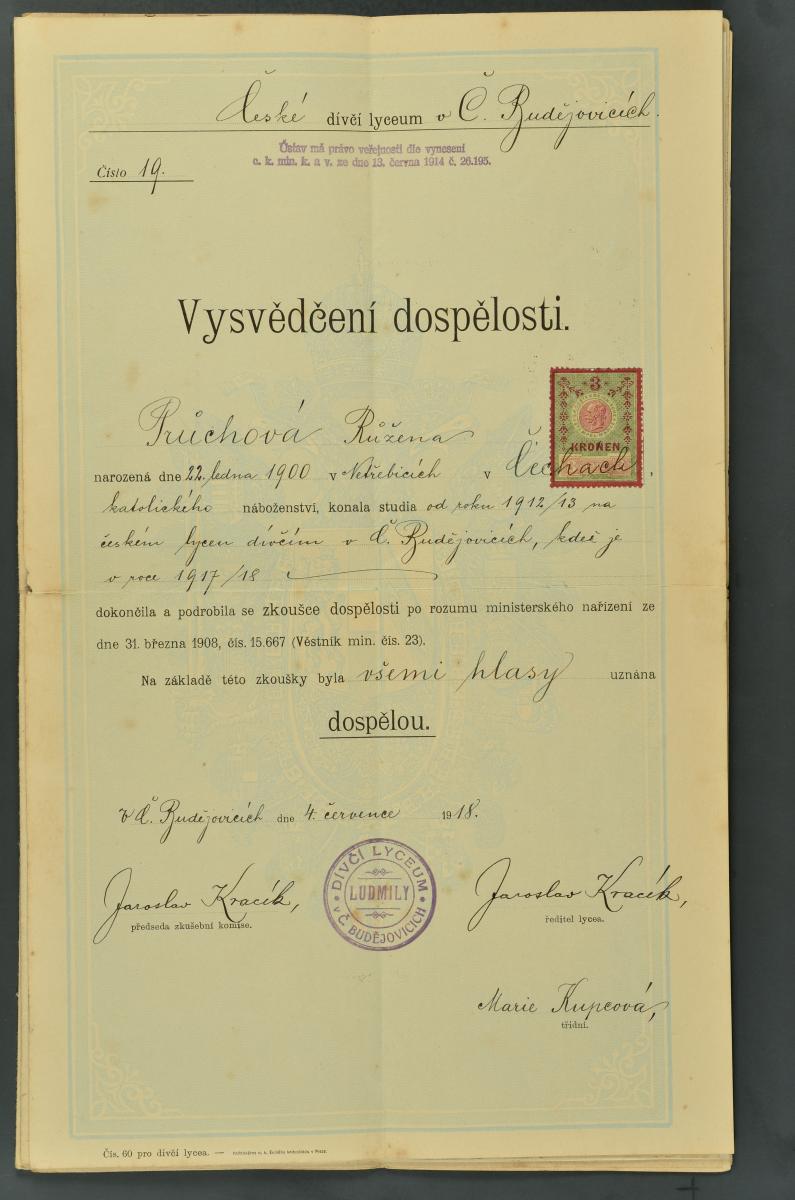 České dívčí lyceum v Č. Budějovicích.
Ústav má právo veřejnosti dle vynesení
c. k. min. k. a v. ze dne 13. června 1914 č. 26.195.
Číslo 19.
Vysvědčení dospělosti.
3
KRONEN
Průchová Růžena
narozená dne 22. ledna 1900 v Netřebicích v Čechach,
katolického náboženství, konala studia od roku 1912/13 na
českém lyceu dívčím v Č. Budějovicích, kdež je
v roce 1917/18
dokončila a podrobila se zkoušce dospělosti po rozumu ministerského nařízení ze
dne 31. března 1908, čís. 15.667 (Věstník min. čís. 23).
Na základě této zkoušky byla všemi hlasy uznána
dospělou.
V Č. Budějovicích dne 4. července 1918.
DÍVČÍ LYCEUM
LUDMILY
v Č. BUDĚJOVICÍCH
Jaroslav Kracík, Jaroslav Kracík,
předseda zkušební komise. ředitel lycea.
Marie Kupcová,
třídní.
Čís. 60 pro dívčí lycea. —